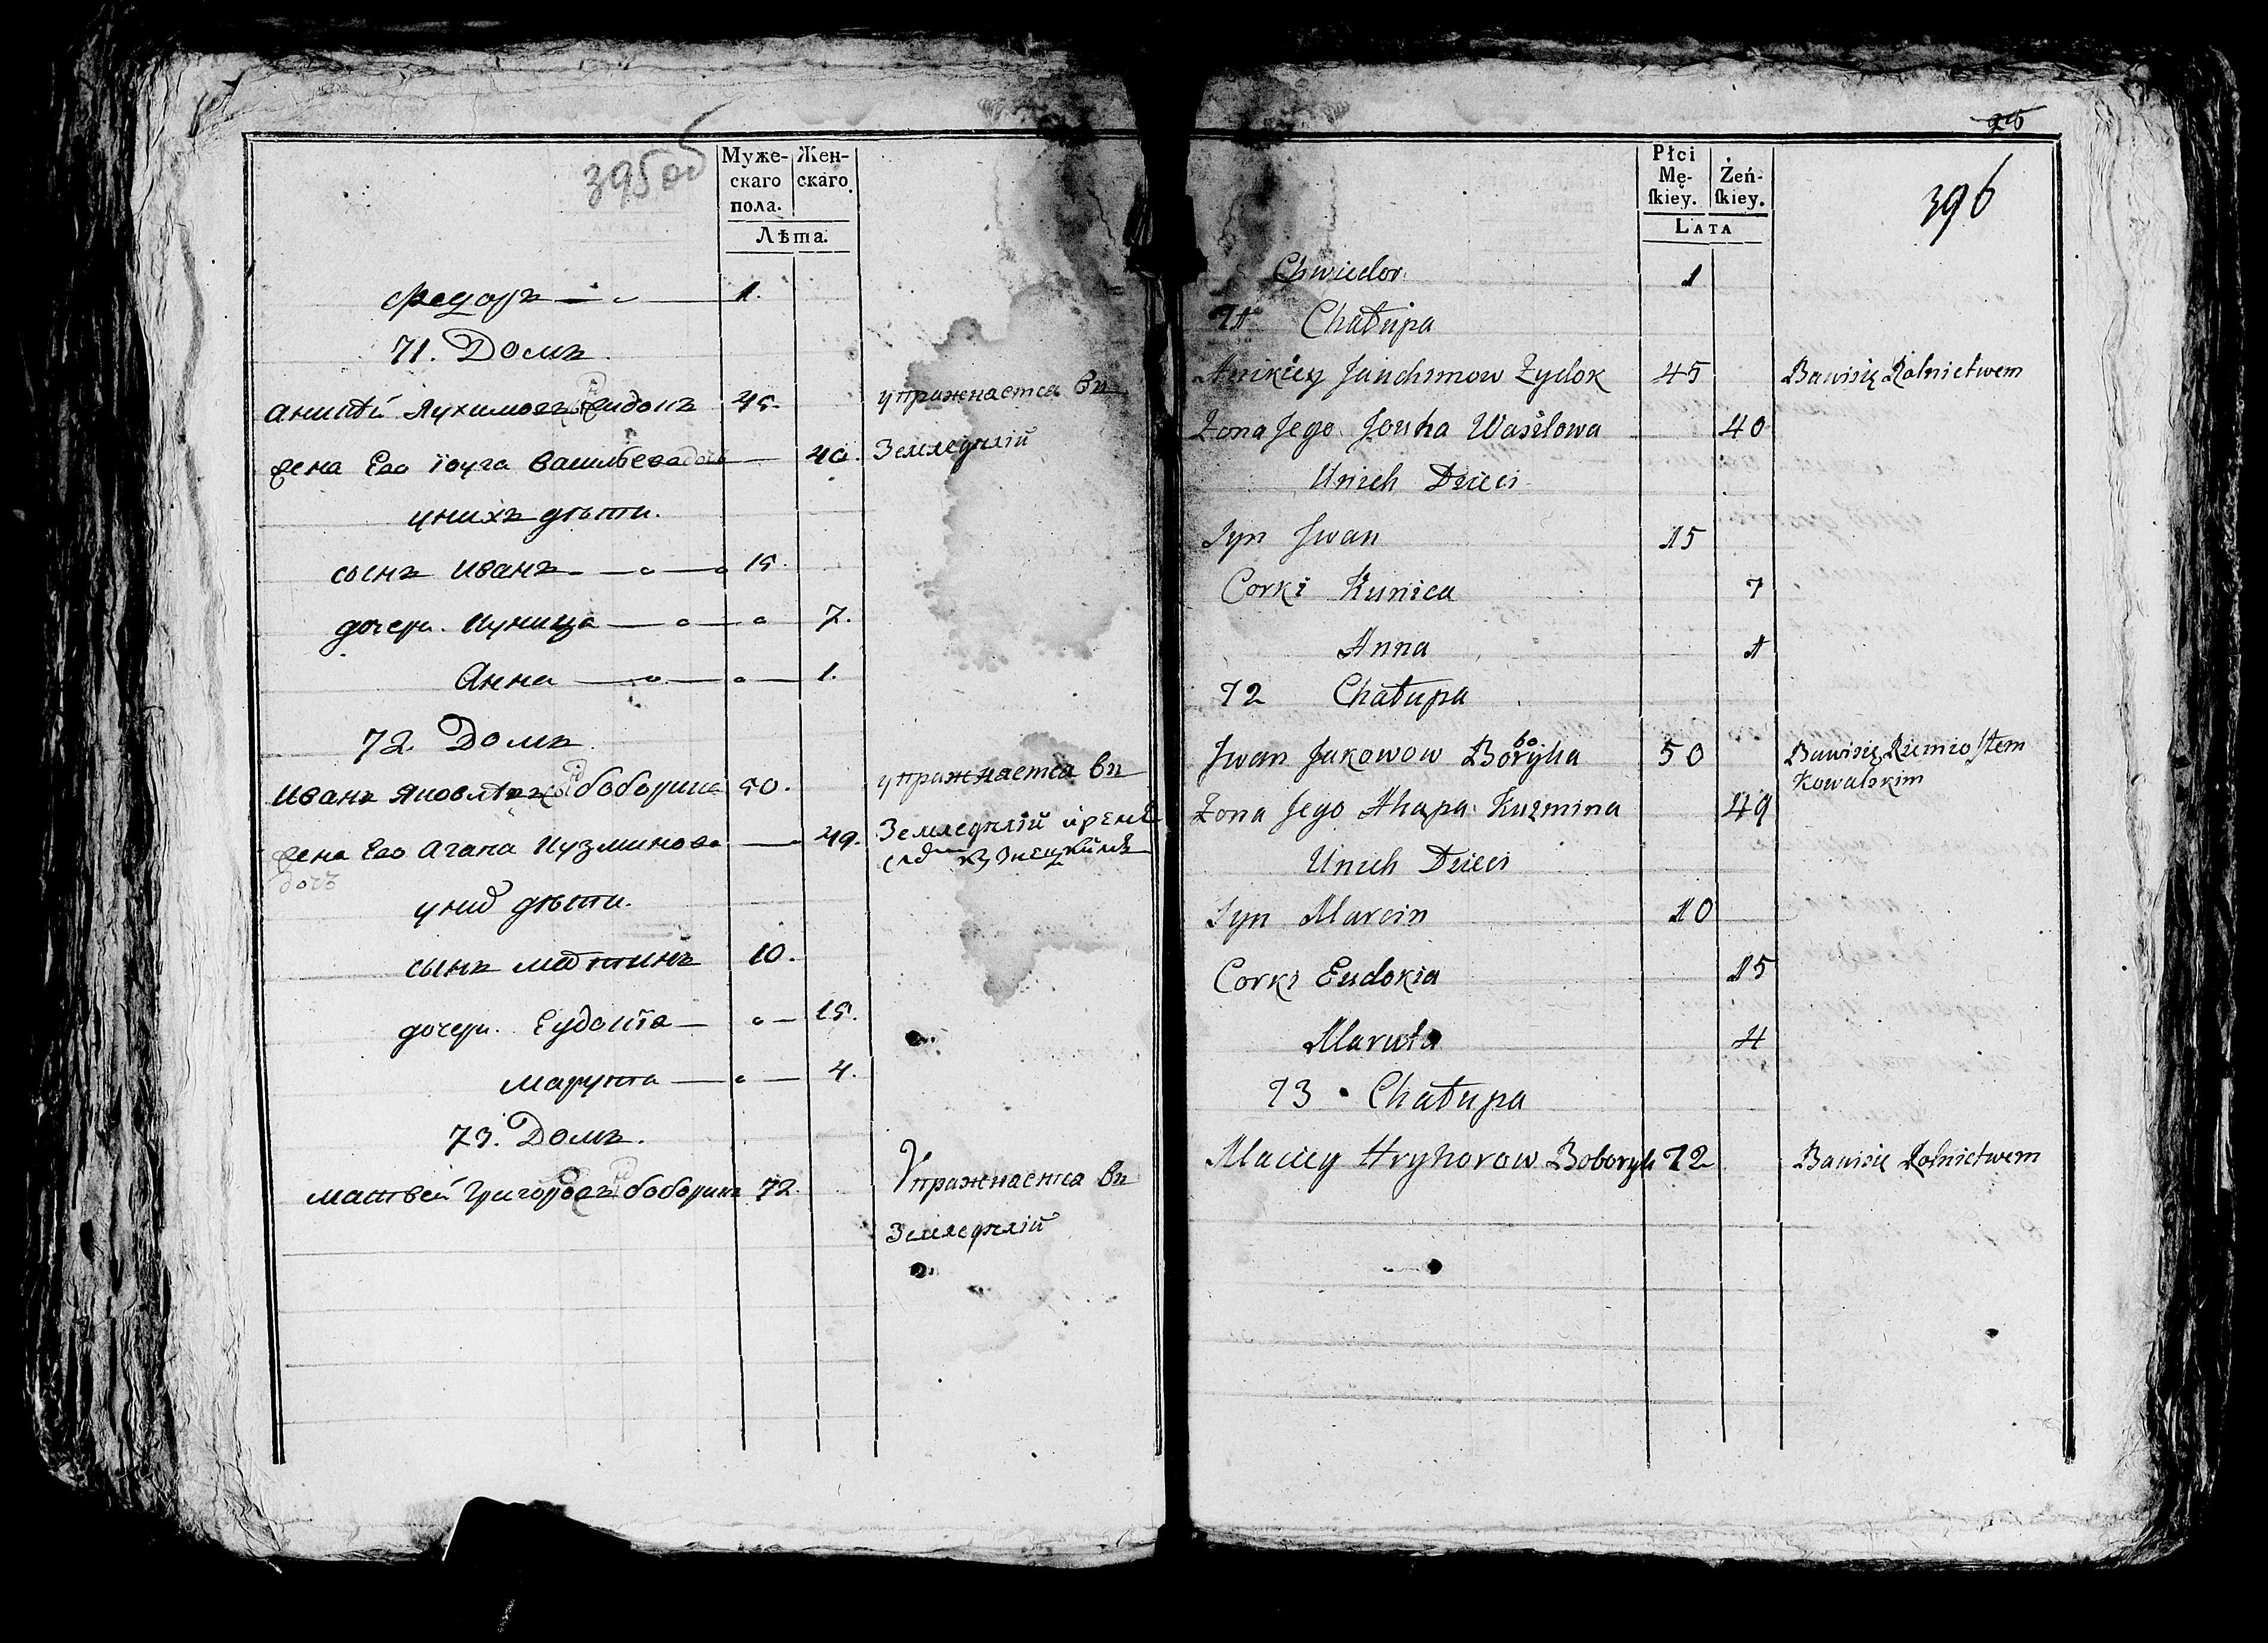 395 об
Муже-
скаго
пола.
Жен-
скаго.
Лѣта.
Федоръ 1.
71. Домъ
Аникѣй Яухимовъ Жидокъ 45. упражнается въ
жена Ево Їоуга Васильева дочь 40. Земледѣлій
у нихъ дѣти.
сынъ Иванъ 15.
дочери. Куница 7.
Анна 1.
72. Домъ
Иванъ Яковлевъ боборика 50. упражнается въ
жена Ево Агапа Кузминова 49. Земледѣлій и реме
дочь слом кузнецкимъ
у них дѣти.
сынъ мартинъ 10.
дочери. Еудокїа 15.
марута 4.
73. Домъ.
матвей Григорьевъ боборыка 72. Упражнается въ
Земледѣлій
26
396
Płci
Mę-
ſkiey.
Żeń-
ſkiey.
LATA
Chwiedor 1
71 Chałupa
Anikiey Jauchimow Zydok 45 Bawisię Rolnictwem
Zona Jego Jouha Wasilowa 40
Unich Dzieci
Syn Jwan 15
Corki Kunica 7
Anna 1
72 Chałupa
bo
Jwan Jakowow Boryka 50 Bawisię Rzemiosłem
Kowalskim
Zona Jego Ahapa Kuzmina 49
Unich Dzieci
Syn Marcin 10
Corki Eudokia 15
Maruta 4
73 Chałupa
Maciey Hryhorow Boboryk 72 Bawisie Rolnictwem